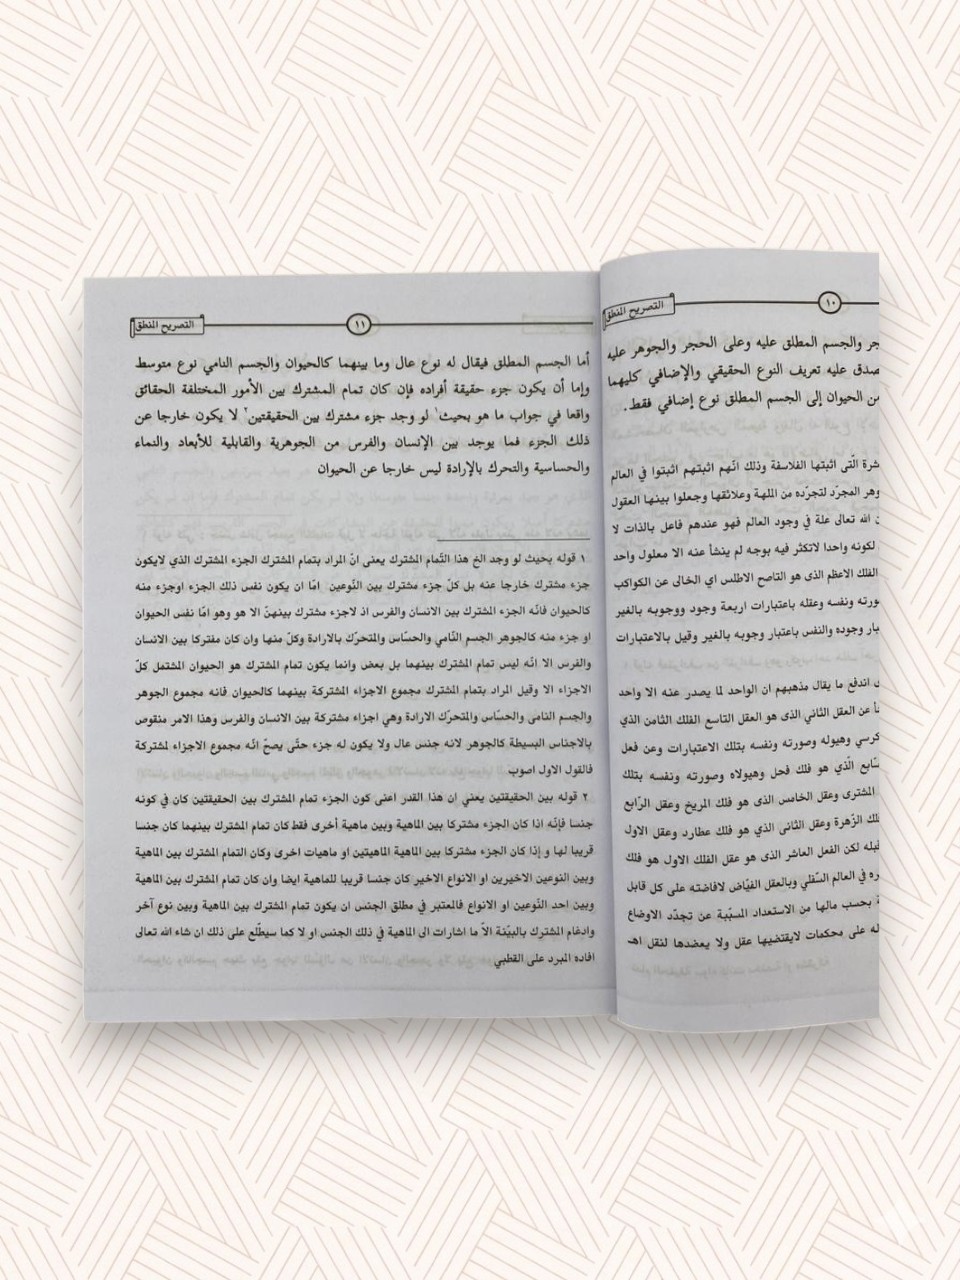 التصريح المنطق
١٠
جر والجسم المطلق عليه وعلى الحجر والجوهر عليه
صدق عليه تعريف النوع الحقيقي والإضافي كليهما
من الحيوان إلى الجسم المطلق نوع إضافي فقط.
شرة الّتى اثبتها الفلاسفة وذلك انّهم اثبتهم اثبتوا في العالم
وهر المجرّد لتجرّده من الملهة وعلائقها وجعلوا بينها العقول
ن الله تعالى علة في وجود العالم فهو عندهم فاعل بالذات لا
لكونه واحدا لاتكثر فيه بوجه لم ينشأ عنه الا معلول واحد
الفلك الاعظم الذى هو التاصح الاطلس اي الخالى عن الكواكب
ورته ونفسه وعقله باعتبارات اربعة وجود ووجوبه بالغير
بار وجوده والنفس باعتبار وجوبه بالغير وقيل بالاعتبارات
ى اندفع ما يقال مذهبهم ان الواحد لما يصدر عنه الا واحد
أ عن العقل الثاني الذى هو العقل التاسع الفلك الثامن الذي
كرسي وهيوله وصورته ونفسه بتلك الاعتبارات وعن فعل
سّابع الّذي هو فلك فحل وهيولاه وصورته ونفسه بتلك
المشترى وعقل الخامس الذى هو فلك المريخ وعقل الرّابع
فلك الزّهرة وعقل الثانى الذي هو فلك عطارد وعقل الاول
قبله لكن الفعل العاشر الذى هو عقل الفلك الاول هو فلك
ره في العالم السّفلي وبالعقل الفيّاض لافاضته على كل قابل
ة بحسب مالها من الاستعداد المسبّبة عن تجدّد الاوضاع
له على محكمات لايقتضيها عقل ولا يعضدها لنقل اهـ
التصريح المنطق
١١
أما الجسم المطلق فيقال له نوع عال وما بينهما كالحيوان والجسم النامي نوع متوسط
وإما أن يكون جزء حقيقة أفراده فإن كان تمام المشترك بين الأمور المختلفة الحقائق
واقعا في جواب ما هو بحيث١ لو وجد جزء مشترك بين الحقيقتين٢ لا يكون خارجا عن
ذلك الجزء فما يوجد بين الإنسان والفرس من الجوهرية والقابلية للأبعاد والنماء
والحساسية والتحرك بالإرادة ليس خارجا عن الحيوان
١ قوله بحيث لو وجد الخ هذا التّمام المشترك يعنى انّ المراد بتمام المشترك الجزء المشترك الذي لايكون
جزء مشترك خارجا عنه بل كلّ جزء مشترك بين النّوعين امّا ان يكون نفس ذلك الجزء اوجزء منه
كالحيوان فانّه الجزء المشترك بين الانسان والفرس اذ لاجزء مشترك بينهنّ الا هو وهو امّا نفس الحيوان
او جزء منه كالجوهر الجسم النّامي والحسّاس والمتحرّك بالارادة وكلّ منها وان كان مفتركا بين الانسان
والفرس الا انّه ليس تمام المشترك بينهما بل بعض وانما يكون تمام المشترك هو الحيوان المشتمل كلّ
الاجزاء الا وقيل المراد بتمام المشترك مجموع الاجزاء المشتركة بينهما كالحيوان فانه مجموع الجوهر
والجسم النامى والحسّاس والمتحرّك الارادة وهي اجزاء مشتركة بين الانسان والفرس وهذا الامر منقوص
بالاجناس البسيطة كالجوهر لانه جنس عال ولا يكون له جزء حتّى يصحّ انّه مجموع الاجزاء المشتركة
فالقول الاول اصوب
٢ قوله بين الحقيقتين يعني ان هذا القدر اعنى كون الجزء تمام المشترك بين الحقيقتين كان في كونه
جنسا فإنّه اذا كان الجزء مشتركا بين الماهية وبين ماهية أخرى فقط كان تمام المشترك بينهما كان جنسا
قريبا لها و إذا كان الجزء مشتركا بين الماهية الماهيتين او ماهيات اخرى وكان التمام المشترك بين الماهية
وبين النوعين الاخيرين او الانواع الاخير كان جنسا قريبا للماهية ايضا وان كان تمام المشترك بين الماهية
وبين احد النّوعين او الانواع فالمعتبر في مطلق الجنس ان يكون تمام المشترك بين الماهية وبين نوع آخر
وادغام المشترك بالبيّنة الاّ ما اشارات الى الماهية في ذلك الجنس او لا كما سيطّلع على ذلك ان شاء الله تعالى
افاده المبرد على القطبي